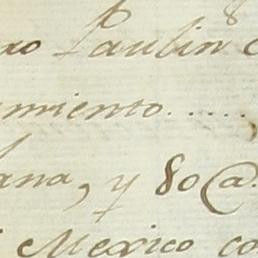 Paulin
miento.....
ana, y 80@.
Mexico co